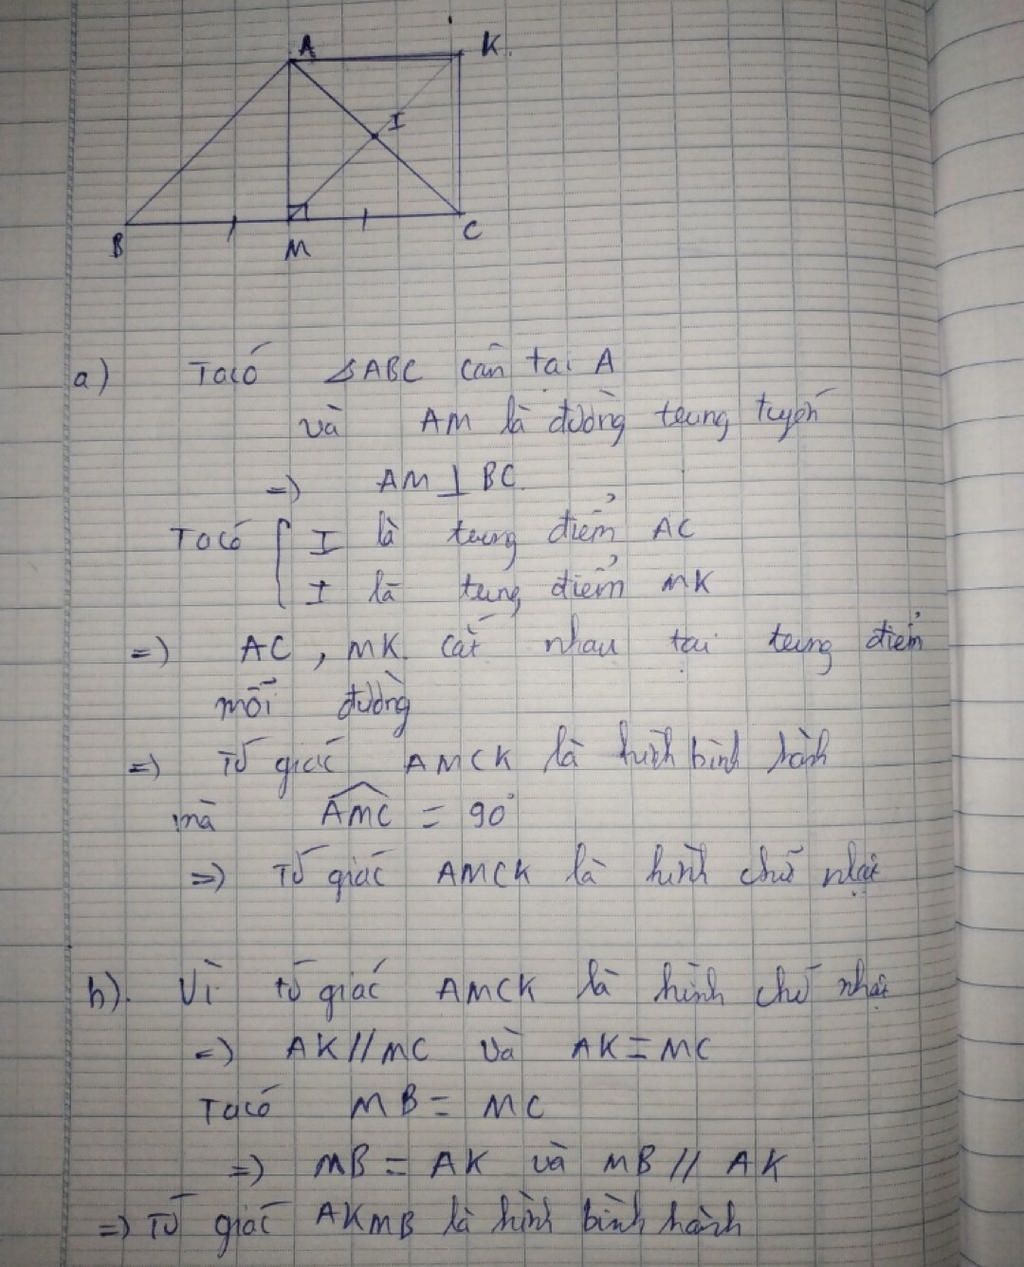 A
K.
I
B
M
C
a) Ta có ΔABC cân tại A
và AM là đường trung tuyến
=> AM ⊥ BC.
Ta có { I là trung điểm AC
I là trung điểm MK
=> AC, MK cắt nhau tại trung điểm
mỗi đường
=> Tứ giác AMCK là hình bình hành
mà AMC = 90°
=> Tứ giác AMCK là hình chữ nhật
b). Vì tứ giác AMCK là hình chữ nhật
=> AK // MC và AK = MC
Ta có MB = MC
=> MB = AK và MB // AK
=> Tứ giác AKMB là hình bình hành